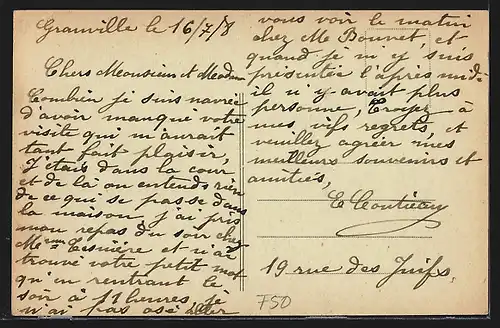 Granville le 16/7/8
Chers Monsieur et Madame
Combien je suis navrée
d'avoir manqué votre
visite qui m'aurait
tant fait plaisir,
J'étais dans la cour
et de là on entends rien
de ce qui se passe dans
la maison, j'ai pris
mon repas du soir chez
Mme et n'ai
trouvé votre petit mot
qu'en rentrant le
soir à 11 heures, je
n'ai pas osé aller
vous voir le matin
chez Me Bonnet, et
quand je m'y suis
présentée l'après midi
il n'y avait plus
personne, Croyez à
mes vifs regrets, et
veuillez agréer mes
meilleurs souvenirs et
amitiés,
19 rue des Juifs.
F50